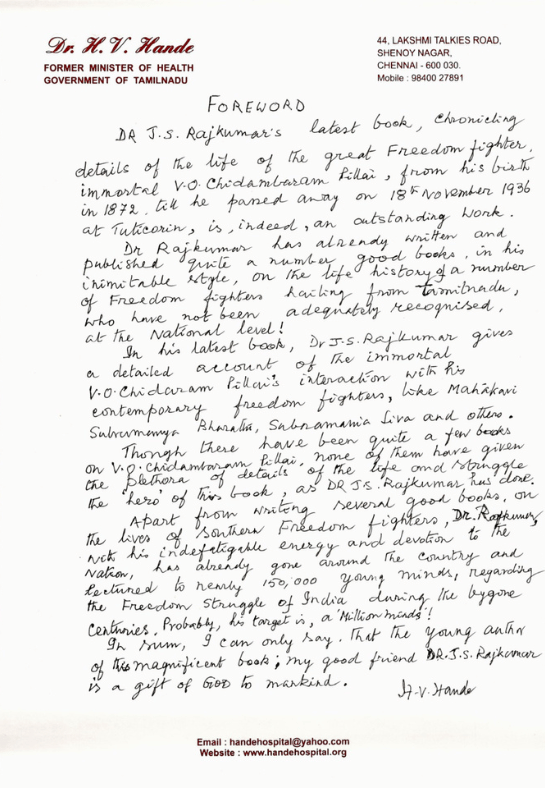 Dr. H. V. Hande
FORMER MINISTER OF HEALTH
GOVERNMENT OF TAMILNADU
44, LAKSHMI TALKIES ROAD,
SHENOY NAGAR,
CHENNAI - 600 030.
Mobile : 98400 27891
FOREWORD
DR J.S. Rajkumar's latest book, Chronicling
details of the life of the great Freedom fighter,
immortal V.O. Chidambaram Pillai, from his birth
in 1872 till he passed away on 18th November 1936
at Tuticorin, is, indeed, an outstanding work.
Dr Rajkumar has already written and
published quite a number good books, in his
inimitable style, on the life history of a number
of Freedom fighters hailing from Tamilnadu,
who have not been adequately recognised,
at the National level!
In his latest book, Dr J.S. Rajkumar gives
a detailed account of the immortal
V.O. Chidavam Pillai's interaction with his
contemporary freedom fighters, like Mahakavi
Subramanya Bharatia, Subramania Siva and others.
Thongh there have been quite a few books
on V.O. Chidambaram Pillai, none of them have given
the plethora of details of the life and struggle
the 'hero' of this book, as DR J.S. Rajkumar has done.
Apart from writing several good books, on
the lives of Southern Freedom fighters, Dr. Rajkumar,
with his indefatigible energy and devotion to the
Nation, has already gone around the country and
lectured to nearly 150,000 young minds, regarding
the Freedom Struggle of India during the bygone
Centuries. Probably, his target is, a 'Million minds'!
In sum, I can only say. That the young author
of this magnificent book; my good friend DR. J.S. Rajkumar
is a gift of GOD to mankind.
H.V. Hande
Email : handehospital@yahoo.com
Website : www.handehospital.org